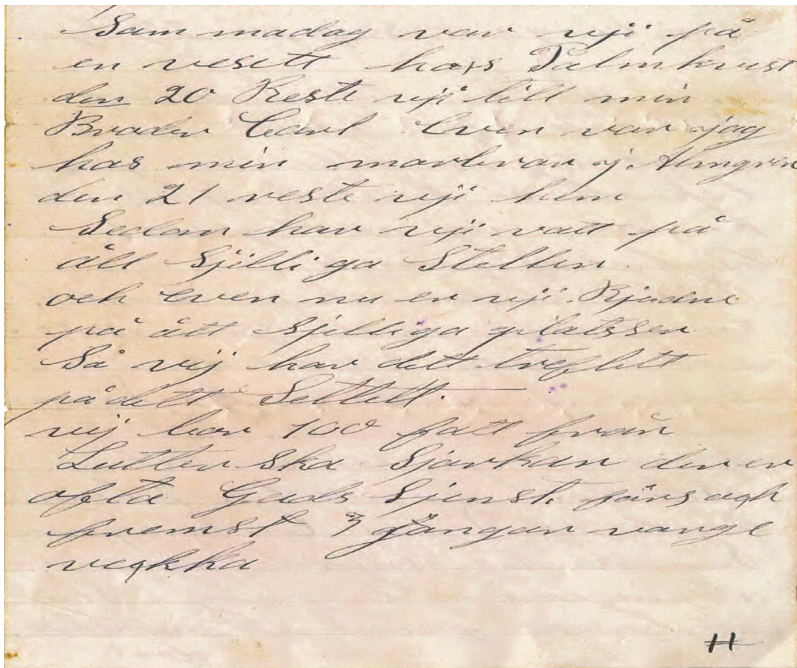 Sammadag var vji på
en vesett hoss Palmkvist
den 20 Reste vji till min
Broder Carl Even var jag
hos min morbror j. Almgren
den 21 reste vji hem
Sedan har vji vatt på
ått Sjilliga Stellen
och even nu er vji Bjudne
på ått Sjilliga platsser
Så vij har dett treflitt
på dett Settett.
vij bor 100 fatt från
Lutterska Sjörkan der er
ofta Guds Sjenst. förs och
fremst 3 gångar varge
veckka
H